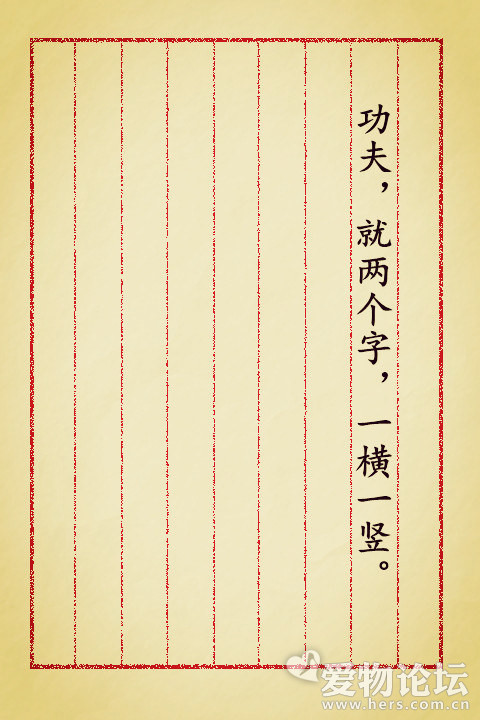 功夫，就两个字，一横一竖。
爱物论坛
www.hers.com.cn